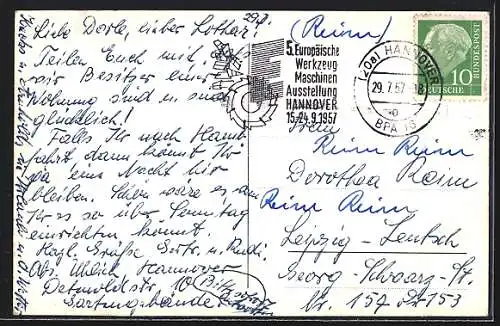 29.7.
Liebe Dorle, lieber Lothar!
Teilen Euch mit,
wir Besitzer einer
Wohnung sind u. sind
glücklich!
Falls Ihr nach Hann.
fahrt dann könnt Ihr
ja eine Nacht hier
bleiben. Schön wäre es wenn
Ihr es so über Sonntag
einrichten könnt.
Herzl. Grüße Gertr. u. Rudi.
Abs. Uhlich, Hannover
Detmolderstr. 10
(Reim)
5. Europäische
Werkzeug
Maschinen
Ausstellung
HANNOVER
15.-24.9.1957
(20a) HANNOVER
29.7.57.-18
BPA 15
DEUTSCHE BUNDESPOST
10
Reim Reim
Dorothea Reim
Reim Reim
Leipzig - Leutzsch
Georg-Schwarz-St.
Nr. 157 153